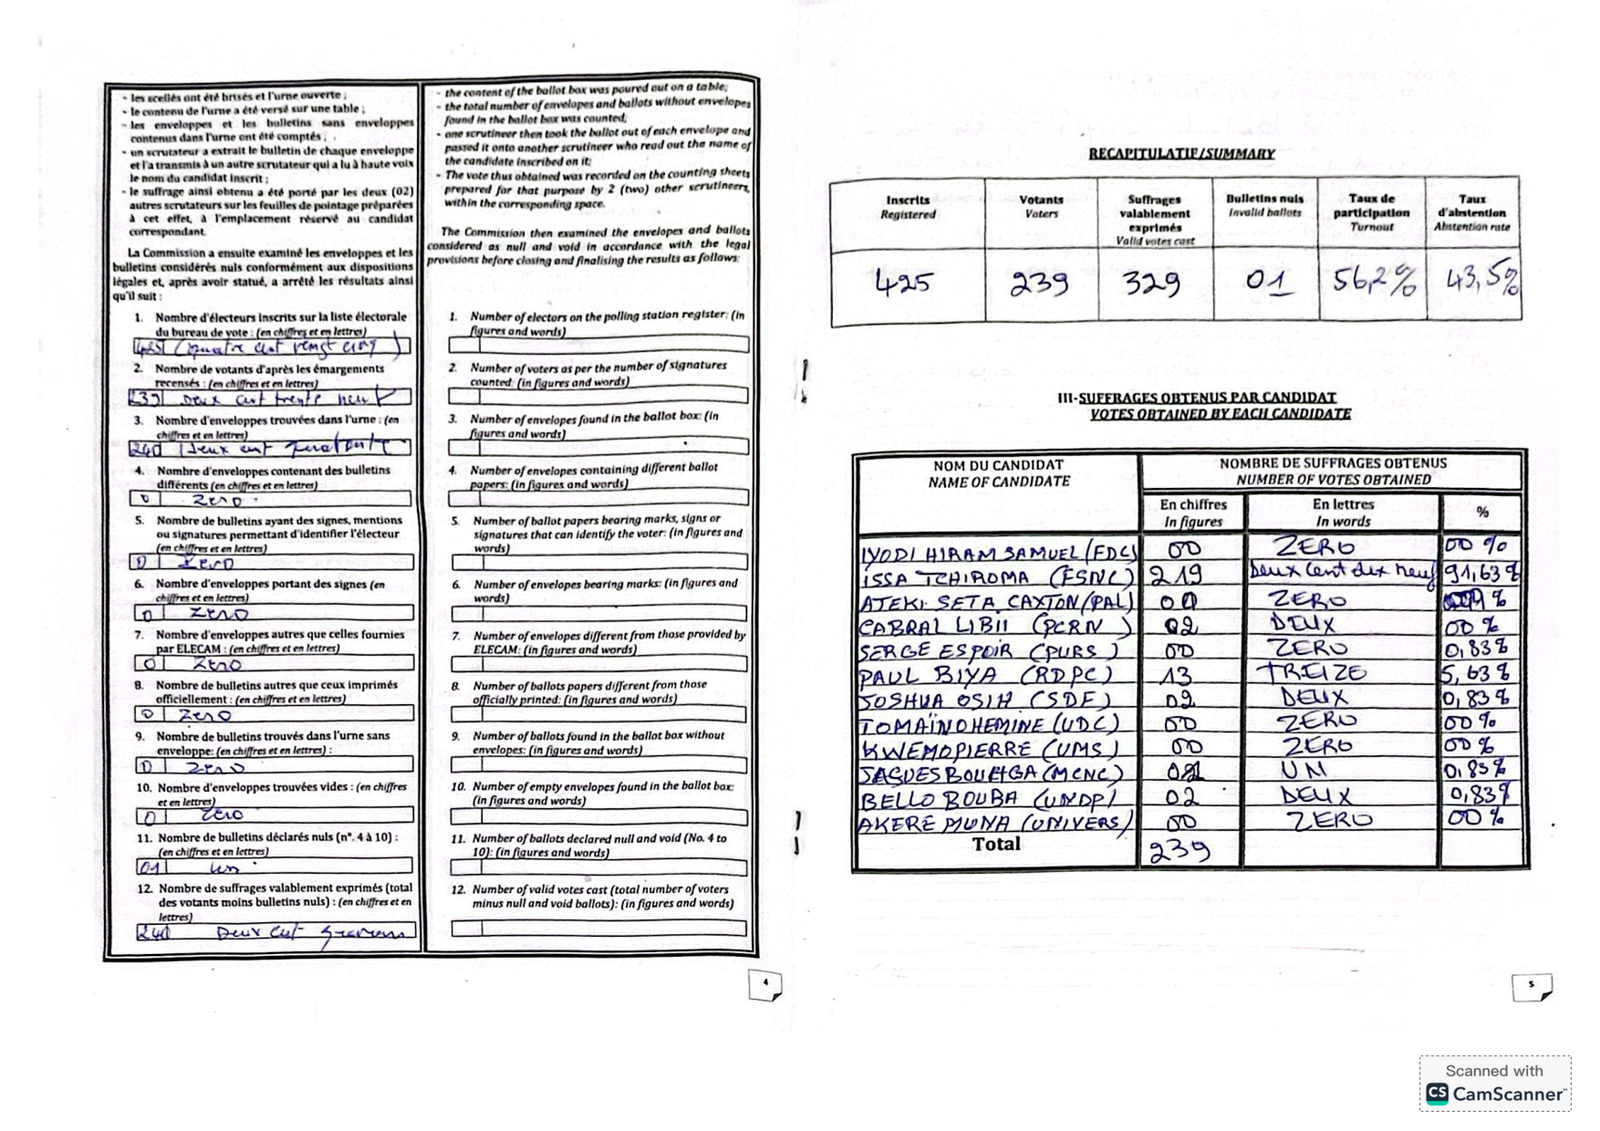 - les scellés ont été brisés et l'urne ouverte ;
- le contenu de l'urne a été versé sur une table ;
- les enveloppes et les bulletins sans enveloppes
contenus dans l'urne ont été comptés ;
- un scrutateur a extrait le bulletin de chaque enveloppe
et l'a transmis à un autre scrutateur qui a lu à haute voix
le nom du candidat inscrit ;
- le suffrage ainsi obtenu a été porté par les deux (02)
autres scrutateurs sur les feuilles de pointage préparées
à cet effet, à l'emplacement réservé au candidat
correspondant.
La Commission a ensuite examiné les enveloppes et les
bulletins considérés nuls conformément aux dispositions
légales et, après avoir statué, a arrêté les résultats ainsi
qu'il suit :
1. Nombre d'électeurs inscrits sur la liste électorale
du bureau de vote : (en chiffres et en lettres)
425 (quatre cent vingt cinq)
2. Nombre de votants d'après les émargements
recensés : (en chiffres et en lettres)
239 Deux cent trente neuf
3. Nombre d'enveloppes trouvées dans l'urne : (en
chiffres et en lettres)
240 Deux cent quarante
4. Nombre d'enveloppes contenant des bulletins
différents (en chiffres et en lettres)
0 zero
5. Nombre de bulletins ayant des signes, mentions
ou signatures permettant d'identifier l'électeur
(en chiffres et en lettres)
0 zero
6. Nombre d'enveloppes portant des signes (en
chiffres et en lettres)
0 zero
7. Nombre d'enveloppes autres que celles fournies
par ELECAM : (en chiffres et en lettres)
0 zero
8. Nombre de bulletins autres que ceux imprimés
officiellement : (en chiffres et en lettres)
0 zero
9. Nombre de bulletins trouvés dans l'urne sans
enveloppe: (en chiffres et en lettres) :
0 zero
10. Nombre d'enveloppes trouvées vides : (en chiffres
et en lettres)
0 zero
11. Nombre de bulletins déclarés nuls (n°. 4 à 10) :
(en chiffres et en lettres)
01 un
12. Nombre de suffrages valablement exprimés (total
des votants moins bulletins nuls) : (en chiffres et en
lettres)
240 Deux cent
- the content of the ballot box was poured out on a table;
- the total number of envelopes and ballots without envelopes
found in the ballot box was counted;
- one scrutineer then took the ballot out of each envelope and
passed it onto another scrutineer who read out the name of
the candidate inscribed on it;
- The vote thus obtained was recorded on the counting sheets
prepared for that purpose by 2 (two) other scrutineers,
within the corresponding space.
The Commission then examined the envelopes and ballots
considered as null and void in accordance with the legal
provisions before closing and finalising the results as follows:
1. Number of electors on the polling station register: (in
figures and words)
2. Number of voters as per the number of signatures
counted: (in figures and words)
3. Number of envelopes found in the ballot box: (in
figures and words)
4. Number of envelopes containing different ballot
papers: (in figures and words)
5. Number of ballot papers bearing marks, signs or
signatures that can identify the voter: (in figures and
words)
6. Number of envelopes bearing marks: (in figures and
words)
7. Number of envelopes different from those provided by
ELECAM: (in figures and words)
8. Number of ballots papers different from those
officially printed: (in figures and words)
9. Number of ballots found in the ballot box without
envelopes: (in figures and words)
10. Number of empty envelopes found in the ballot box:
(in figures and words)
11. Number of ballots declared null and void (No. 4 to
10): (in figures and words)
12. Number of valid votes cast (total number of voters
minus null and void ballots): (in figures and words)
4
RECAPITULATIF/SUMMARY
Inscrits Registered | Votants Voters | Suffrages valablement exprimés Valid votes cast | Bulletins nuls Invalid ballots | Taux de participation Turnout | Taux d'abstention Abstention rate
425 239 329 01 56,2% 43,5%
III-SUFFRAGES OBTENUS PAR CANDIDAT
VOTES OBTAINED BY EACH CANDIDATE
NOM DU CANDIDAT NOMBRE DE SUFFRAGES OBTENUS
NAME OF CANDIDATE NUMBER OF VOTES OBTAINED
En chiffres En lettres %
In figures In words
IYODI HIRAM SAMUEL (FDC) 00 ZERO 00 %
ISSA TCHIROMA (FSNC) 219 Deux cent dix neuf 91,63 %
ATEKI SETA CAXTON (PAL) 00 ZERO %
CABRAL LIBII (PCRN) 02 DEUX 00 %
SERGE ESPOIR (PURS) 00 ZERO 0,83 %
PAUL BIYA (RDPC) 13 TREIZE 5,63 %
JOSHUA OSIH (SDF) 02 DEUX 0,83 %
TOMAÏNO HEMINE (UDC) 00 ZERO 00 %
KWEMO PIERRE (UMS) 00 ZERO 00 %
JAQUES BOUHGA (MCNC) UN 0,83 %
BELLO BOUBA (UNDP) 02 DEUX 0,83 %
AKERE MUNA (UNIVERS) 00 ZERO 00 %
Total 239
5
Scanned with
CS CamScanner